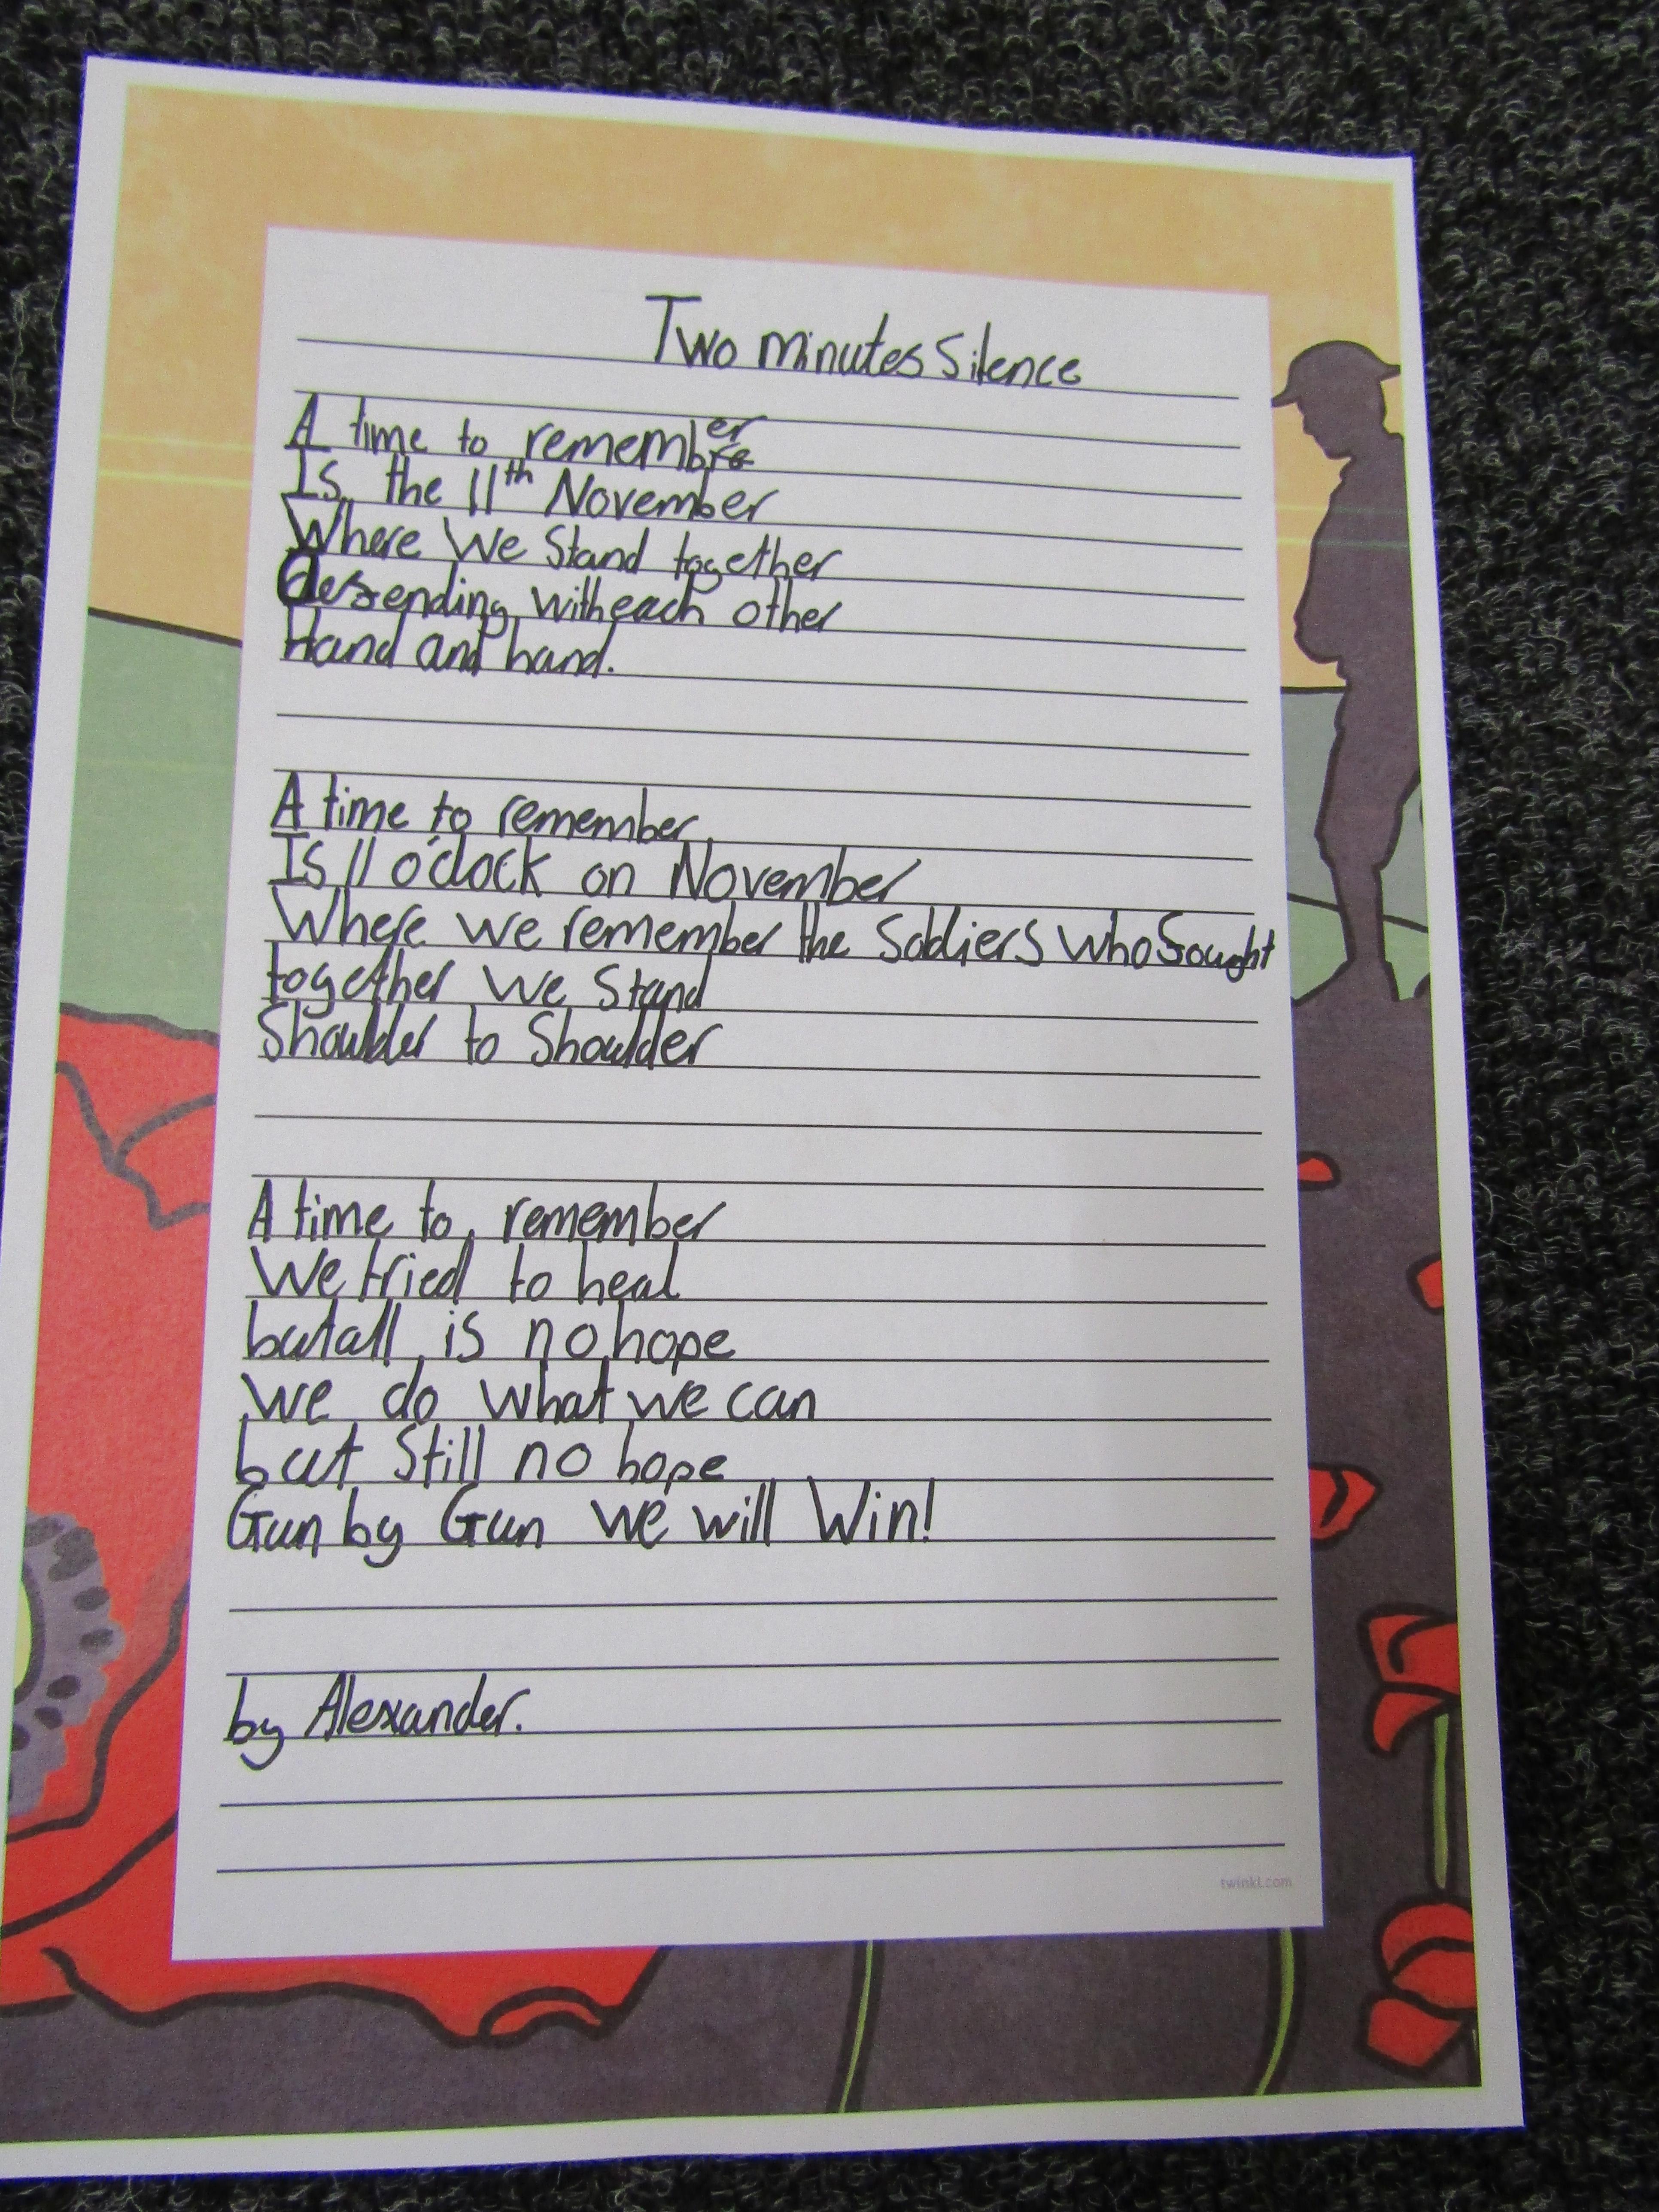 Two minutes Silence
A time to remember
Is the 11th November
Where We Stand together
defending with each other
Hand and hand.
A time to remember
Is 11 o'clock on November
Where we remember the Soldiers who fought
together we Stand
Shoulder to Shoulder
A time to remember
We tried to heal
but all is no hope
we do what we can
but Still no hope
Gun by Gun we will Win!
by Alexander.
twinkl.com